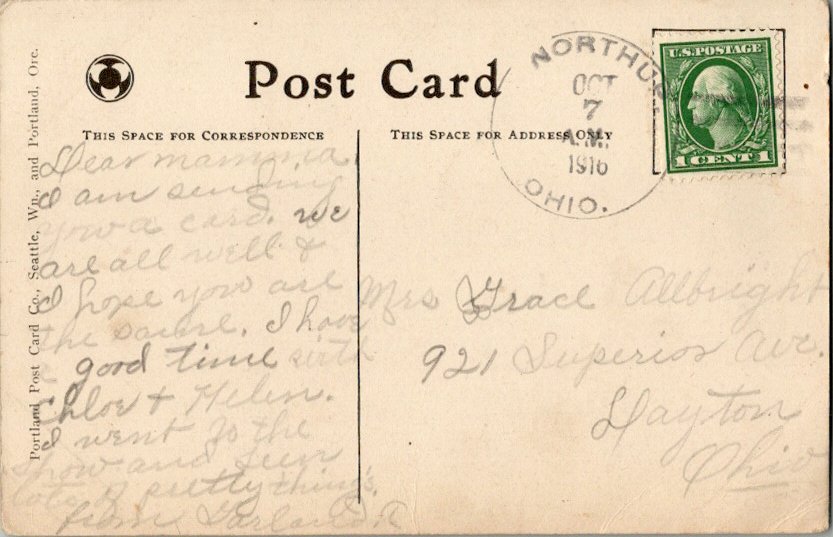 Post Card
THIS SPACE FOR CORRESPONDENCE
THIS SPACE FOR ADDRESS ONLY
Portland Post Card Co., Seattle, Wn., and Portland, Ore.
NORTHUP
OCT
7
A.M.
1916
OHIO.
U.S. POSTAGE
1 CENT 1
Dear mamma.
I am sending
you a card. we
are all well &
I hope you are
the same. I have
a good time with
Chloe & Helen.
I went to the
show and seen
lots of pretty things.
from Garland.
Mrs Grace Allbright
921 Superior Ave.
Dayton
Ohio